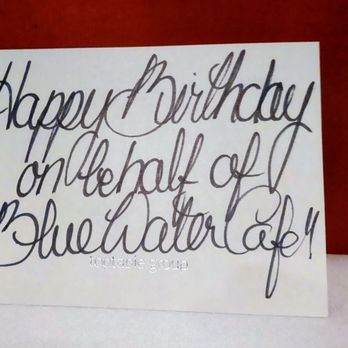 Happy Birthday
on behalf of
Blue Water Cafe"
toptable group